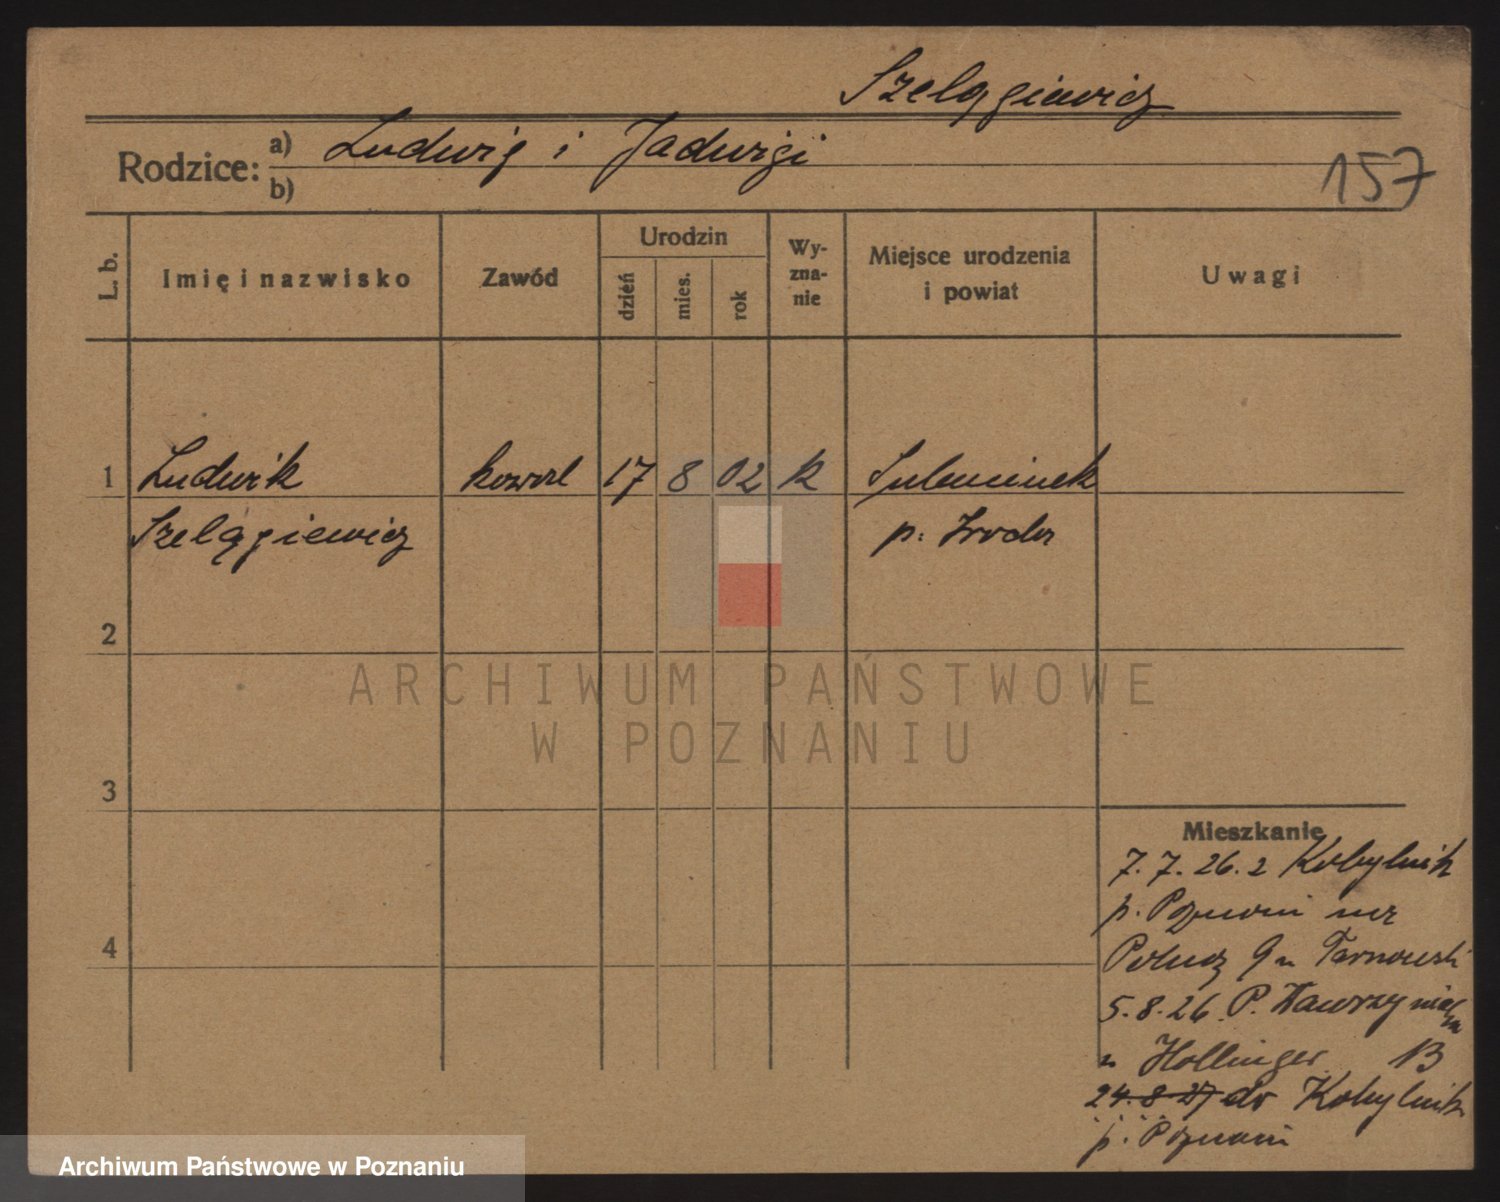 Szelągiewicz
Rodzice: a) Ludwig i Jadwigi
b)
157
L. b.
Imię i nazwisko
Zawód
Urodzin
dzień
mies.
rok
Wy-
zna-
nie
Miejsce urodzenia
i powiat
Uwagi
1 Ludwik kowal 17 8 02 k
Szelągiewicz p. Środa
2
3
4
Mieszkanie
7.7.26. z Kobylnik
p. Poznań na
9 u Tarnowski
5.8.26. P. Wawrzyniaka
u Hollinger B
24.8.27 do Kobylnik
p. Poznań
ARCHIWUM PAŃSTWOWE
W POZNANIU
Archiwum Państwowe w Poznaniu